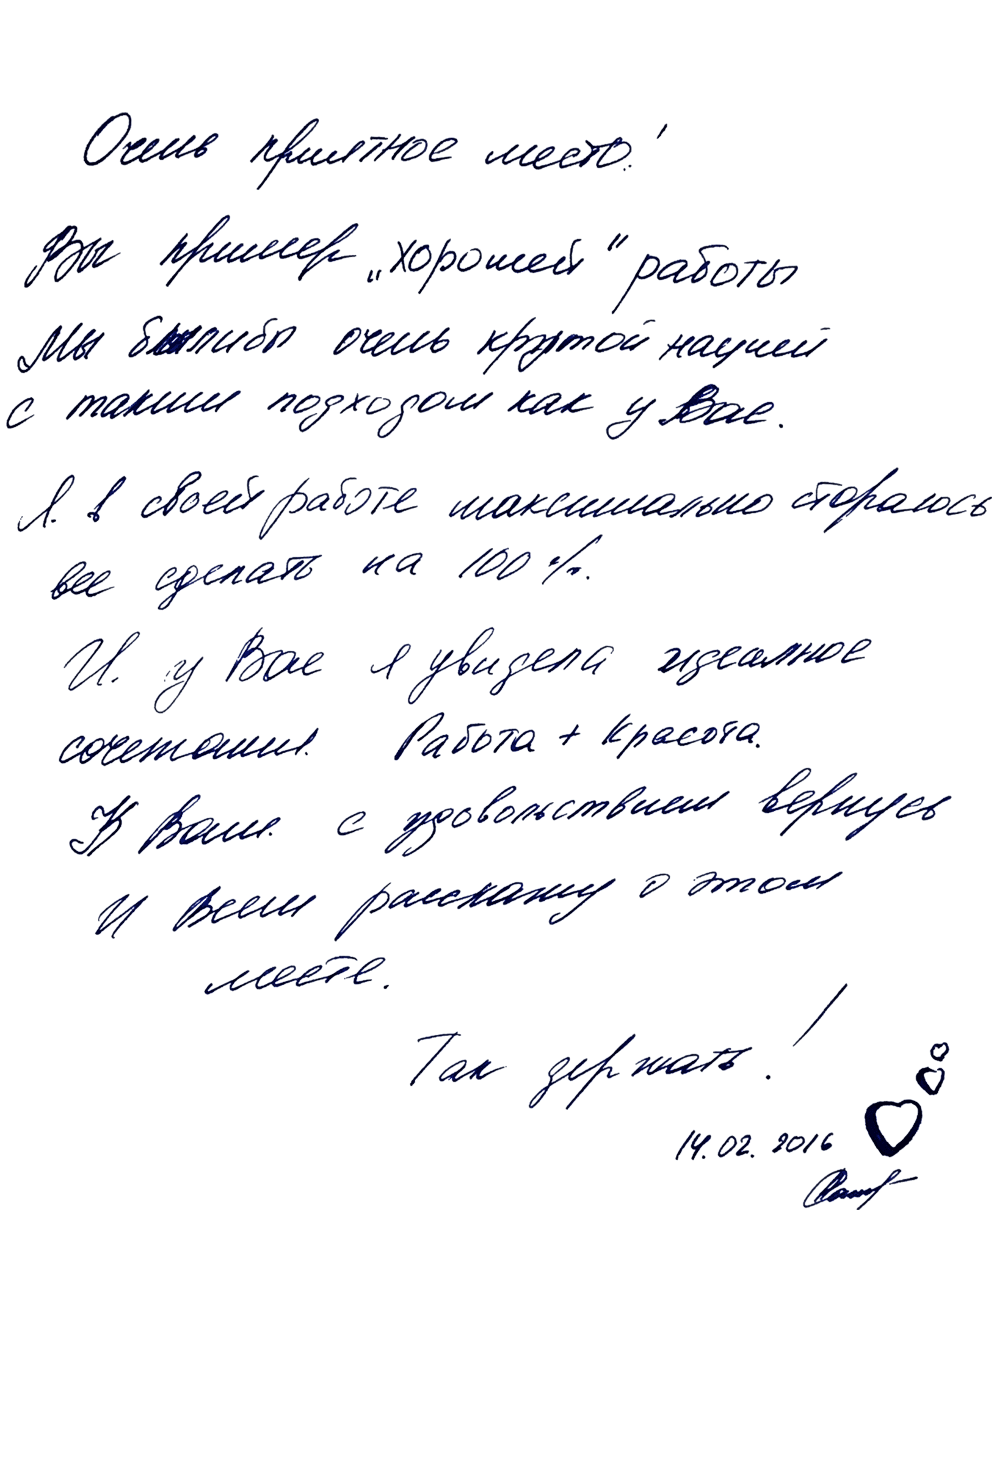 Очень приятное место!
Вы пример „хорошей" работы
Мы былибы очень крутой нацией
с таким подходом как у Вас.
Я. в своей работе максимально стораюсь
все сделать на 100 %.
И. у Вас я увидела идеалное
сочетания. Работа + Красота.
К Вам. с удовольствием вернусь
И Всем расскажу о этом
месте.
Так держать!
14.02.2016